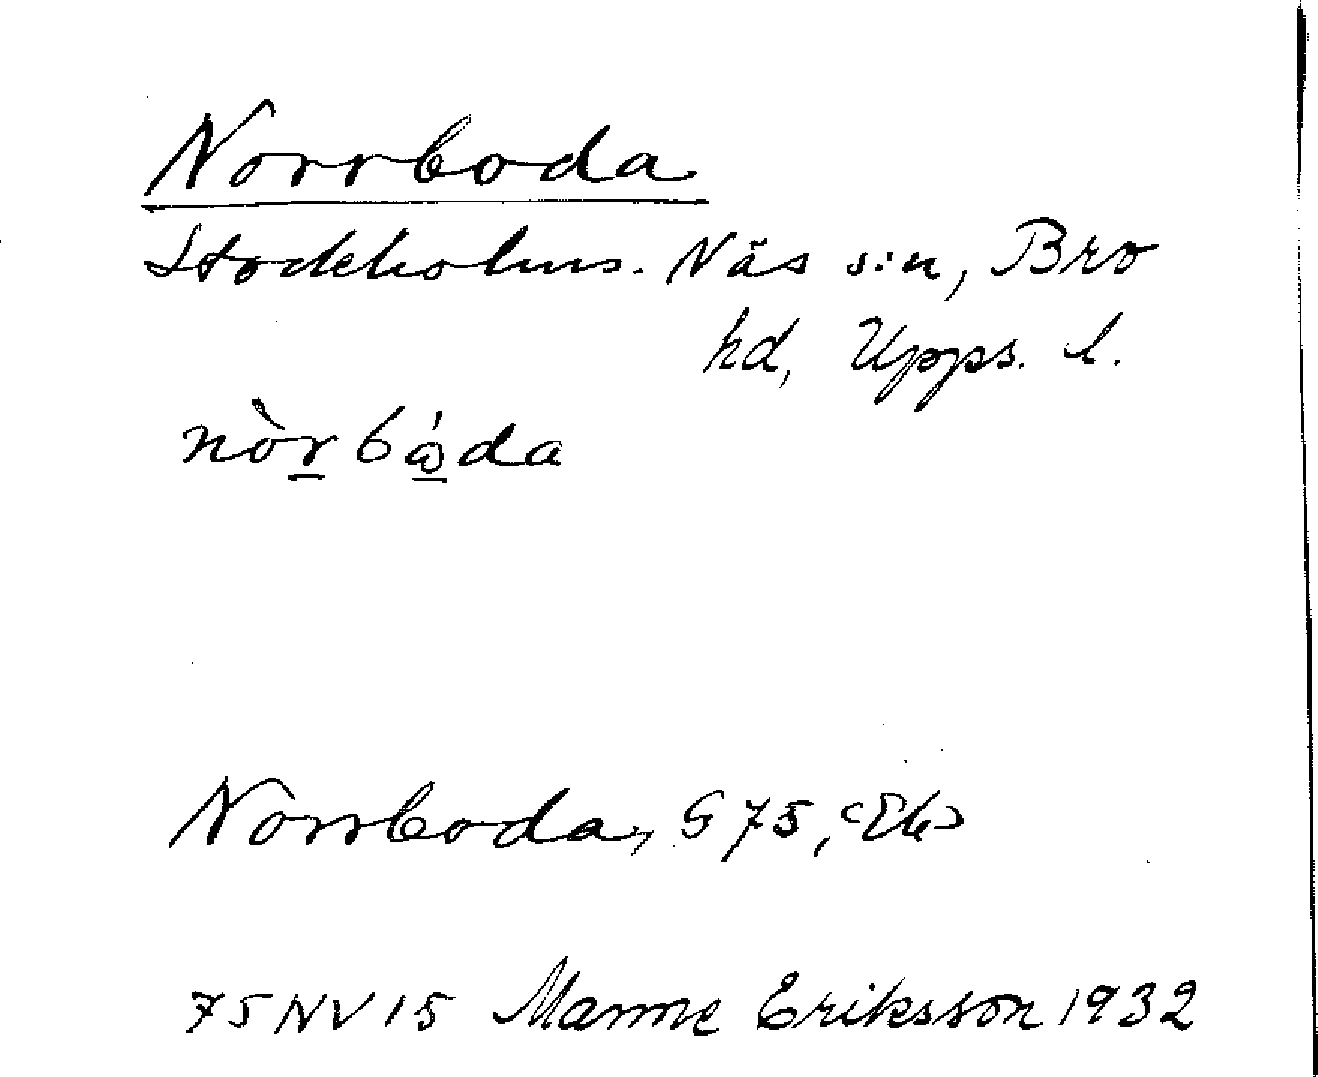 Norrboda
Stockholms-Näs s:n, Bro
hd, Upps. l.
nòrbǻda
Norrboda, G 75, <Ek>
75NV15 Manne Eriksson 1932